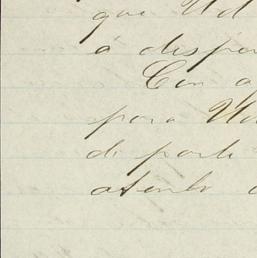 que Ud
á dispo
Con a
para Ud
di parte
atento